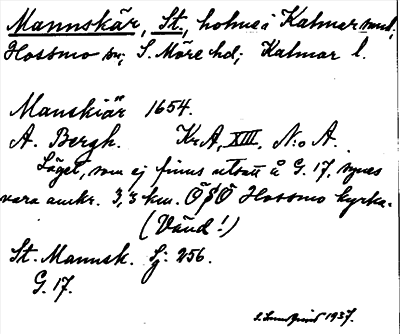 Mannskär, St., holme i Kalmarsund,
Hossmo sn; S. Möre hd; Kalmar l.
Manskiär 1654.
A. Bergh. Kr.A, XIII, N:o A.
Läget, som ej finns utsatt å G. 17, synes
vara omkr. 3,3 km. ÖSÖ Hossmo kyrka.
(Vänd!)
St. Mannsk. Sj. 256.
G. 17.
1937.